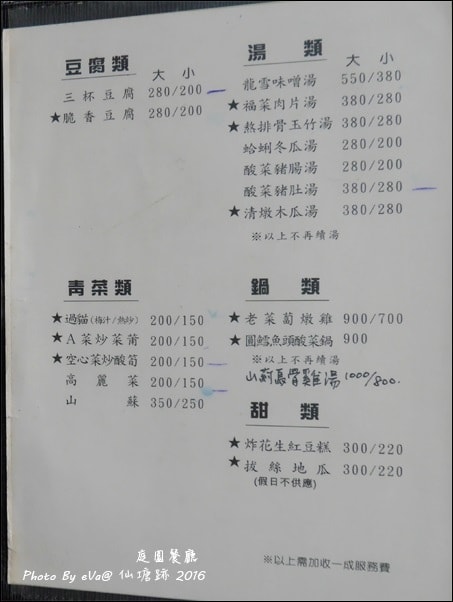 豆腐類
大 小
三杯豆腐 280/200
★脆香豆腐 280/200
湯 類
大 小
龍雪味噌湯 550/380
★福菜肉片湯 380/280
★熬排骨玉竹湯 380/280
蛤蜊冬瓜湯 280/200
酸菜豬腸湯 280/200
酸菜豬肚湯 380/280
★清燉木瓜湯 380/280
※以上不再續湯
青菜類
★過貓(梅汁/熱炒) 200/150
★A菜炒菜莆 200/150
★空心菜炒酸筍 200/150
高麗菜 200/150
山蘇 350/250
鍋 類
★老菜蔔燉雞 900/700
★圓鱈魚頭酸菜鍋 900
※以上不再續湯
雞湯 1000/800.
甜 類
★炸花生紅豆糕 300/220
★拔絲地瓜 300/220
(假日不供應)
庭園餐廳
Photo By eVa@ 仙塘跡 2016
※以上需加收一成服務費